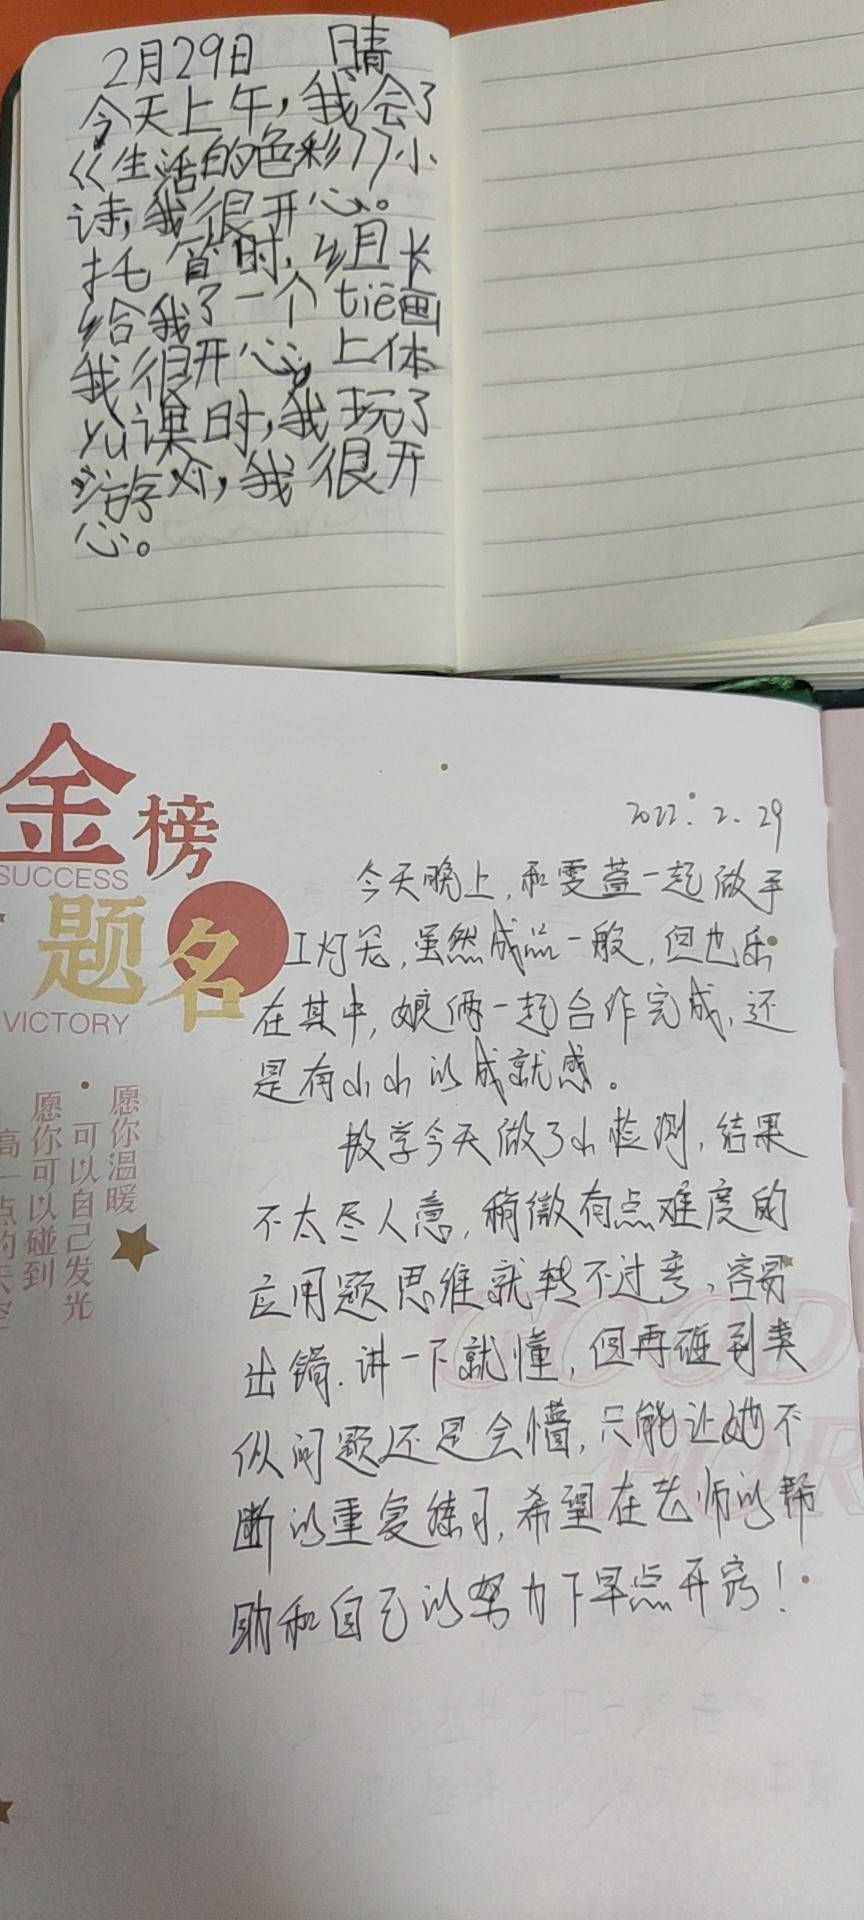 2月29日 晴
今天上午，我会了
《生活的色彩》小
诗，我很开心。
托管时，组长
给我了一个tiē画
我很开心，上体
yù课时，我玩了
游戏，我很开
心。
金榜
SUCCESS
题名
VICTORY
愿你温暖
可以自己发光
愿你可以碰到
高一点的天空
2.29
今天晚上，和雯萱一起做手
工灯笼，虽然成品一般，但也乐
在其中，娘俩一起合作完成，还
是有小小的成就感。
数学今天做了小检测，结果
不太尽人意，稍微有点难度的
应用题思维就转不过弯，容易
出错．讲一下就懂，但再碰到类
似问题还是会懵，只能让她不
断的重复练习，希望在老师的帮
助和自己的努力下早点开窍！
GOOD
FOR